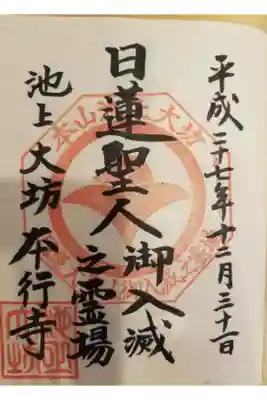 平成二十七年十二月三十一日
日蓮聖人御入滅
之霊場
池上大坊本行寺